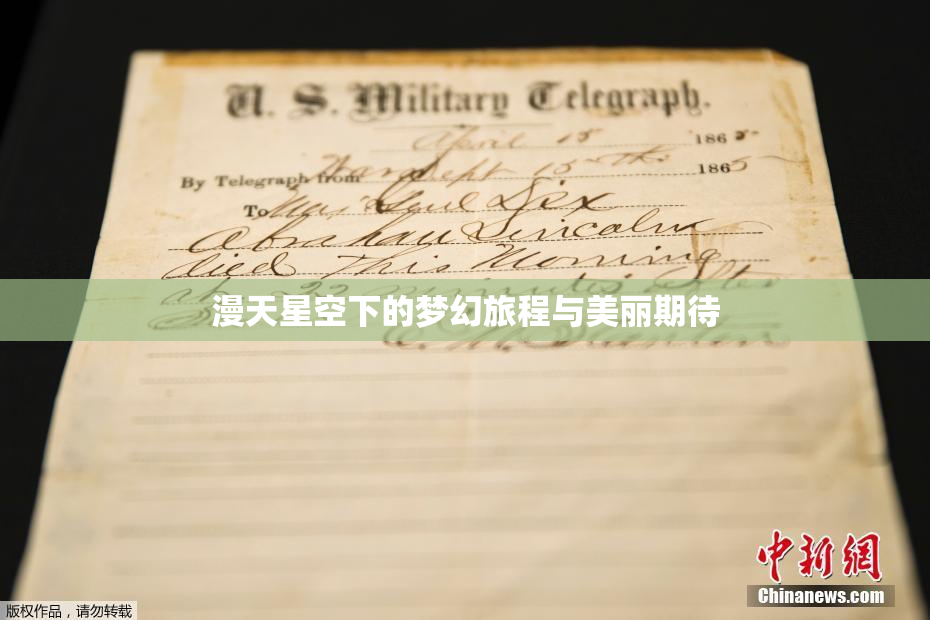 U. S. Military Telegraph.
April 15 1865
By Telegraph from War Dept 15th 1865
To Maj Genl Dix
Abraham Lincoln
died This Morning
at 22 minutes after
漫天星空下的梦幻旅程与美丽期待
E. M. Stanton
中新網
Chinanews.com
版权作品,请勿转载